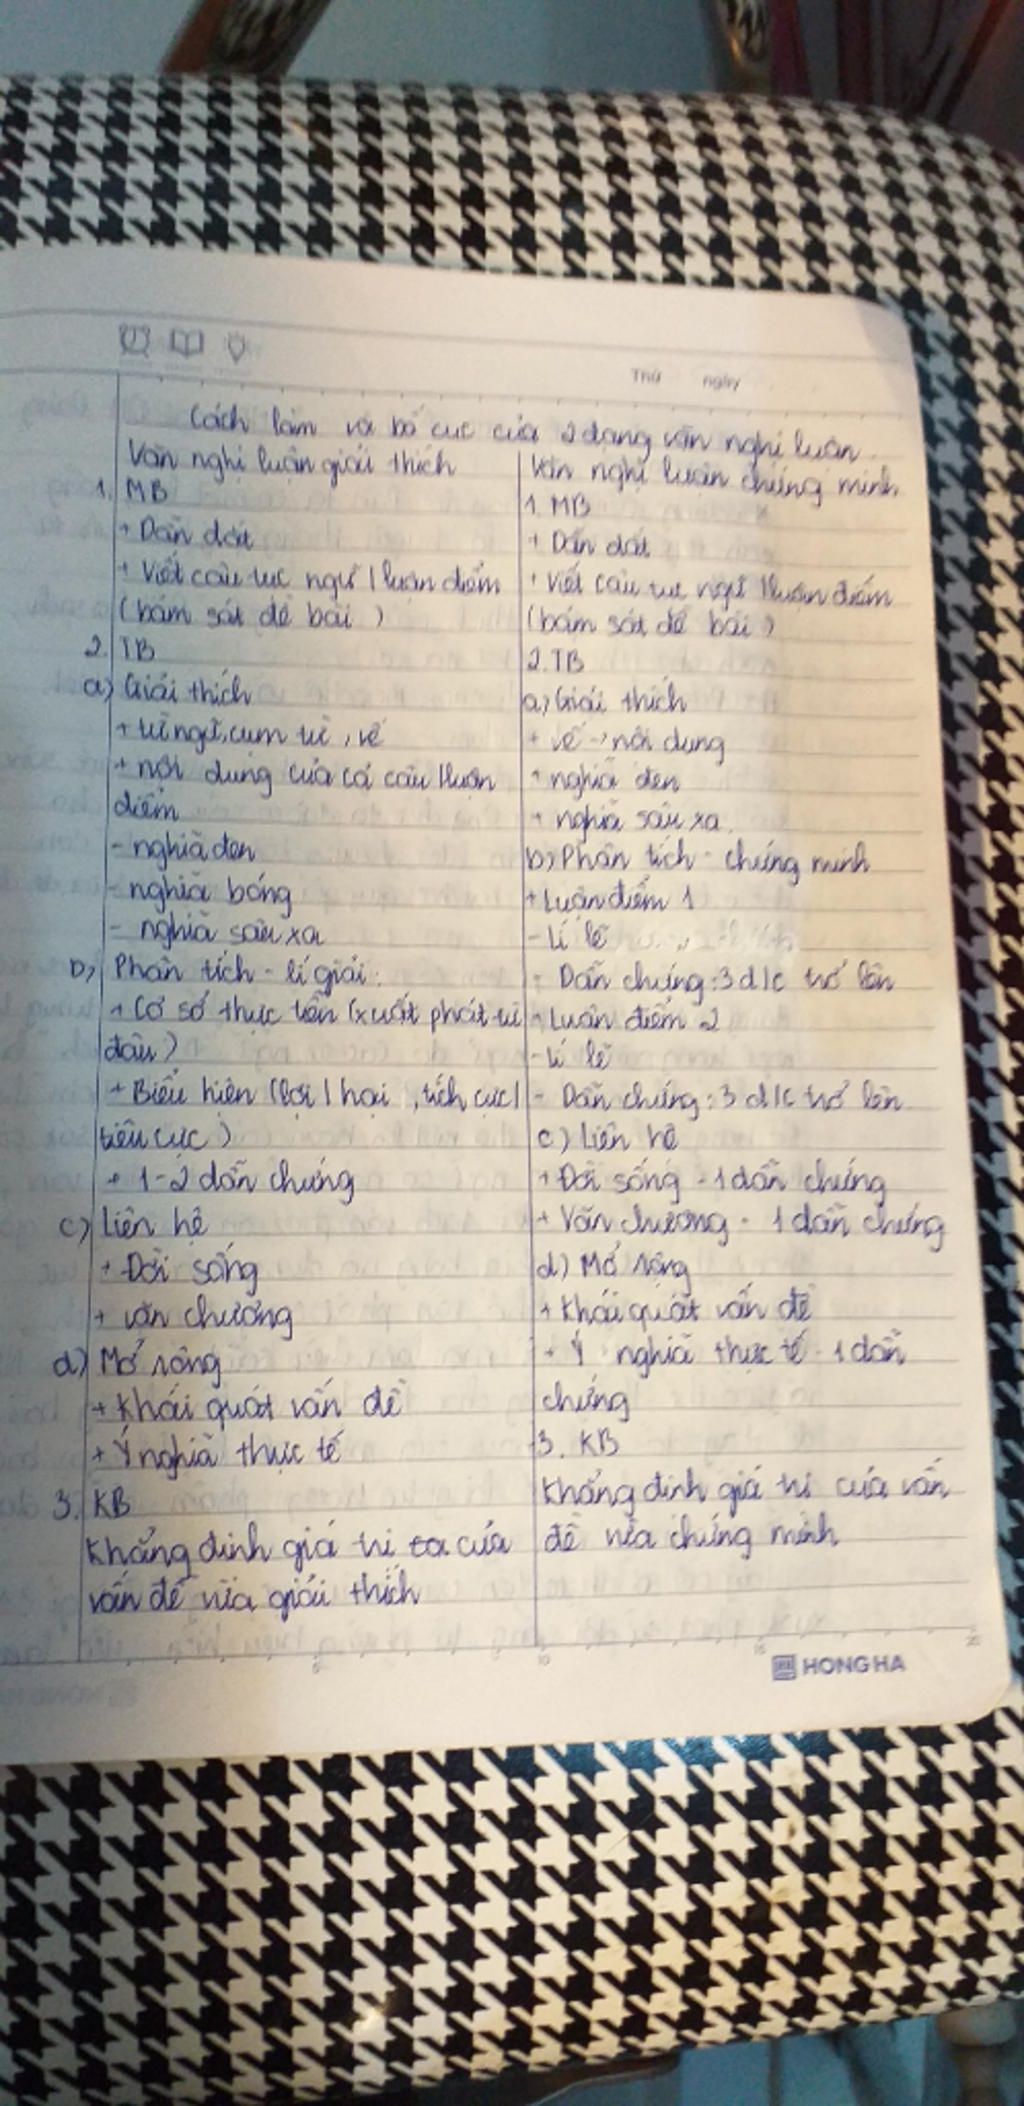 Thứ ngày
Cách làm và bố cục của 2 dạng văn nghị luận
Văn nghị luận giải thích
1. MB
+ Dẫn dắt
+ Viết câu tục ngữ / luận điểm
(bám sát đề bài)
2. TB
a) Giải thích
+ từ ngữ, cụm từ, vế
+ nội dung của cả câu / luận
điểm
- nghĩa đen
- nghĩa bóng
- nghĩa sâu xa
b) Phân tích - lí giải:
+ Cơ sở thực tiễn (xuất phát từ
đâu)
+ Biểu hiện (lợi / hại, tích cực /
tiêu cực)
+ 1-2 dẫn chứng
c) Liên hệ
+ Đời sống
+ văn chương
d) Mở rộng
+ Khái quát vấn đề
+ Ý nghĩa thực tế
3. KB
Khẳng định giá trị của
vấn đề vừa giải thích
Văn nghị luận chứng minh
1. MB
+ Dẫn dắt
+ Viết câu tục ngữ / luận điểm
(bám sát đề bài)
2. TB
a) Giải thích
+ vế → nội dung
+ nghĩa đen
+ nghĩa sâu xa.
b) Phân tích - chứng minh
+ Luận điểm 1
- Lí lẽ
- Dẫn chứng: 3 d/c trở lên
+ Luận điểm 2
- Lí lẽ
- Dẫn chứng: 3 d/c trở lên
c) Liên hệ
+ Đời sống - 1 dẫn chứng
+ Văn chương - 1 dẫn chứng
d) Mở rộng
+ Khái quát vấn đề
+ Ý nghĩa thực tế - 1 dẫn
chứng
3. KB
Khẳng định giá trị của vấn
đề vừa chứng minh
HONG HA